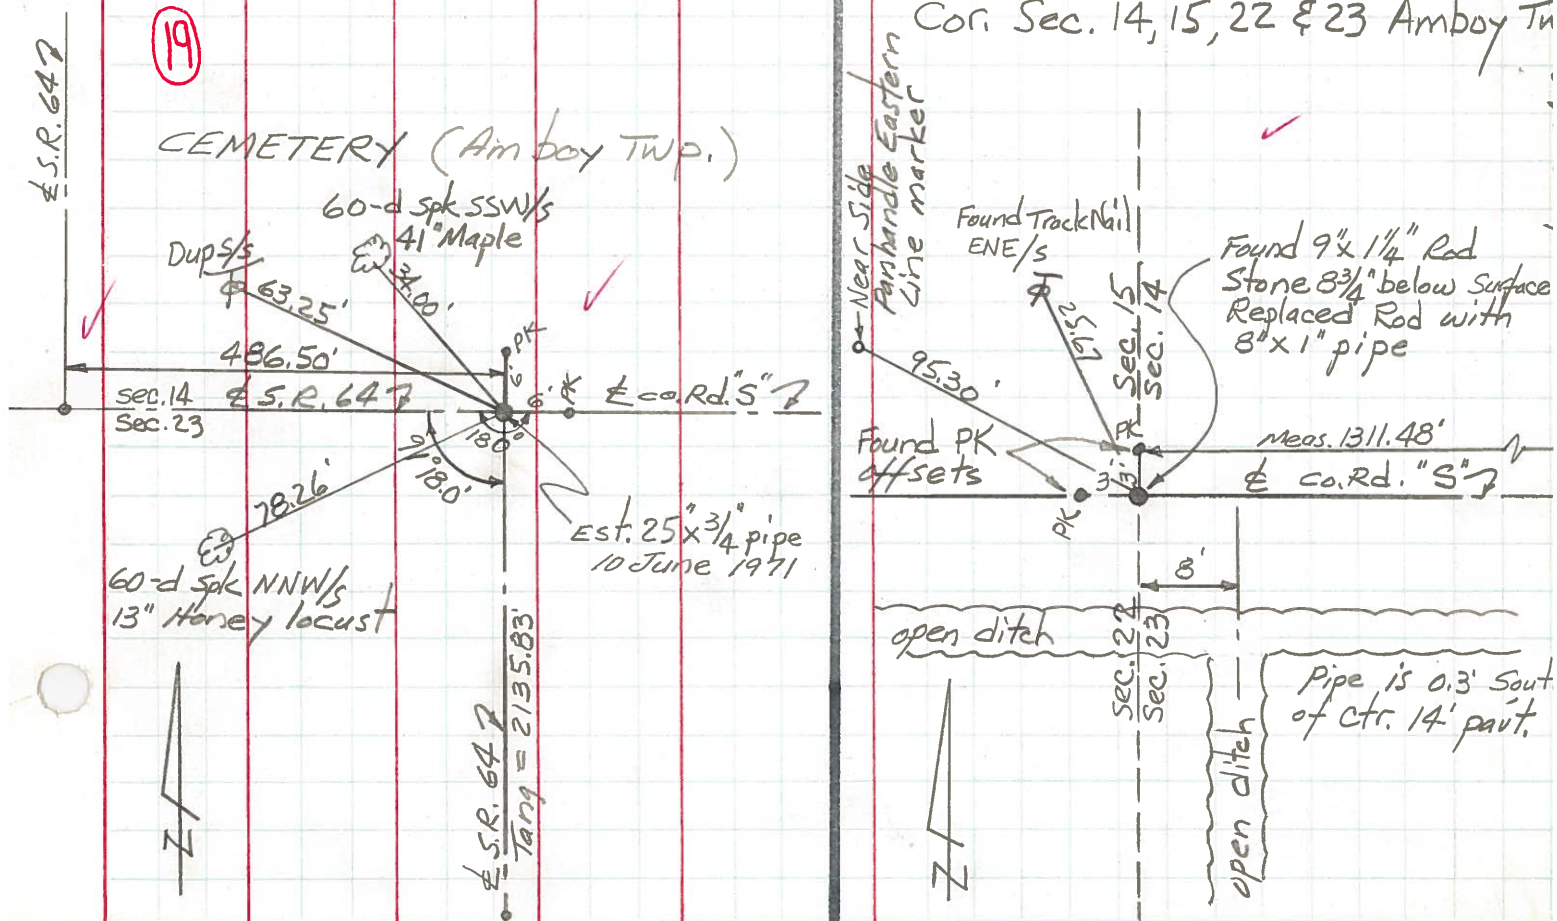 19
℄ S.R. 64
CEMETERY (Amboy Twp.)
60-d spk SSW/s
41" Maple
Dup S/s
34.00'
63.25'
486.50'
PK
6'
6'
PK
sec. 14
Sec. 23
℄ S.R. 64
℄ co. Rd. "S"
180°
91°18.0'
78.26'
Est. 25" x 3/4" pipe
10 June 1971
60-d spk NNW/s
13" Honey locust
℄ S.R. 64
Tang = 2135.83'
N
Cor. Sec. 14, 15, 22 & 23 Amboy
Near Side
Panhandle Eastern
Line marker
Found Track Nail
ENE/s
25.67
Sec. 15
Sec. 14
Found 9" x 1¼" Rod
Stone 8¾" below Surface
Replaced Rod with
8" x 1" pipe
95.30'
Found PK
offsets
PK
3'
3'
PK
Meas. 1311.48'
℄ co. Rd. "S"
8'
open ditch
Sec. 22
Sec. 23
Pipe is 0.3' Sout
of Ctr. 14' pav't.
open ditch
N